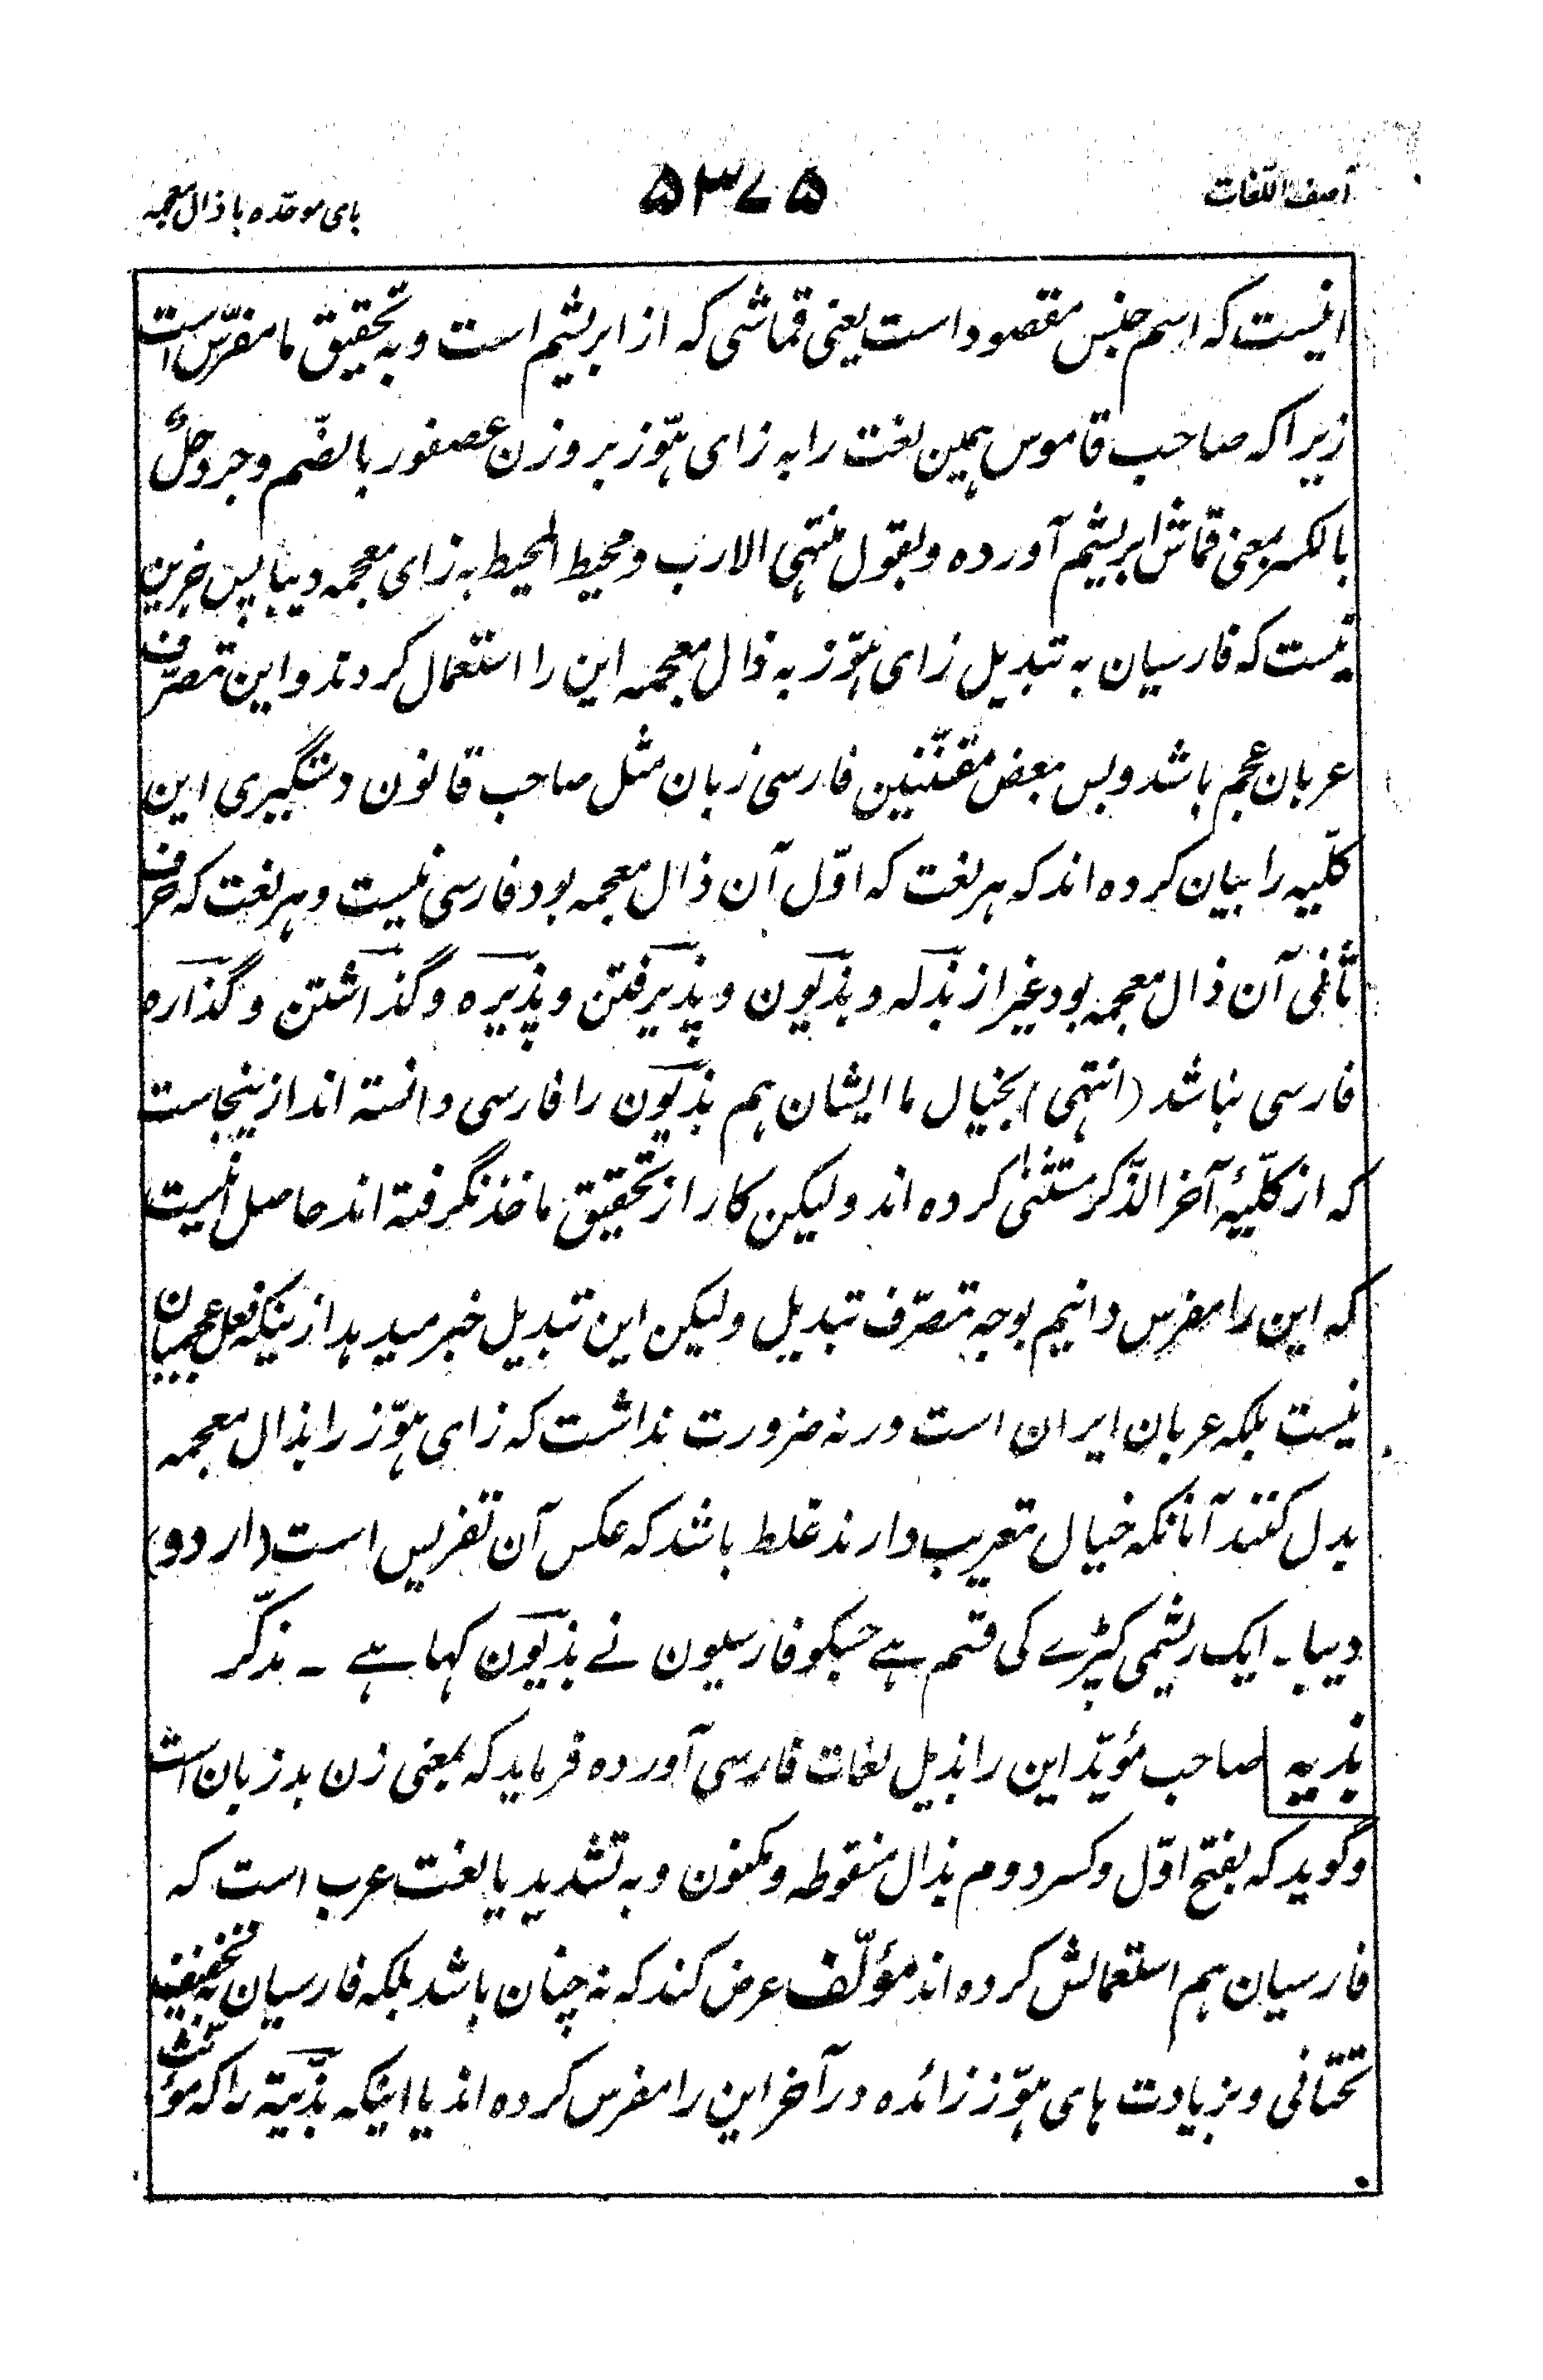 آصف اللّغات
۵۳۷۵
بای موحّده با ذال معجمه
اینست که اسم جنس مقصود است یعنی قماشی که از ابریشم است و به تحقیق ما مفرّس است
زیرا که صاحب قاموس همین لغت را به زای هوّز بر وزن عصفور بالضّم و جردحلٌ
بالکسر بمعنی قماش ابریشم آورده و بقول منتهی الارب و محیط المحیط به زای معجمه دیبا پس جزین
نیست که فارسیان به تبدیل زای هوّز به ذال معجمه این را استعمال کردند و این تصرّف
عربان عجم باشد و بس بعض مقنّنین فارسی زبان مثل صاحب قانون دستگیری این
کلّیه را بیان کرده اند که هر لغت که اوّل آن ذال معجمه بود فارسی نیست و هر لغت که حرف
ثانی آن ذال معجمه بود غیر از بذله و بذیون و پذیرفتن و پذیره و گذاشتن و گذاره
فارسی نباشد (انتهی) بخیال ما ایشان هم بذیون را فارسی دانسته اند ازینجاست
که از کلّیهٔ آخر الذّکر مستثنیٰ کرده اند ولیکن کار از تحقیق ماخذ نگرفته اند حاصل اینست
که این را مفرس دانیم بوجه تصرّف تبدیل ولیکن این تبدیل خبر میدهد ازینکه فعل عجمیان
نیست بلکه عربان ایران است ورنه ضرورت نداشت که زای هوّز را بذال معجمه
بدل کنند آنانکه خیال تعریب دارند غلط باشد که عکس آن تفریس است (اردو)
دیبا۔ ایک ریشمی کپڑے کی قسم ہے جسکو فارسیون نے بذیون کہا ہے ۔ مذکّر
بذیه صاحب مؤیّد این را بذیل لغات فارسی آورده فرماید که بمعنی زن بد زبان است
و گوید که بفتح اوّل و کسر دوم بذال منقوطه و مکنون و به تشدید یا لغت عرب است که
فارسیان هم استعمالش کرده اند مؤلّف عرض کند که نه چنان باشد بلکه فارسیان به تخفیف
تحتانی و بزیادت های هوّز زائده در آخر این را مفرس کرده اند یا اینکه بذیّة را که مؤنّث